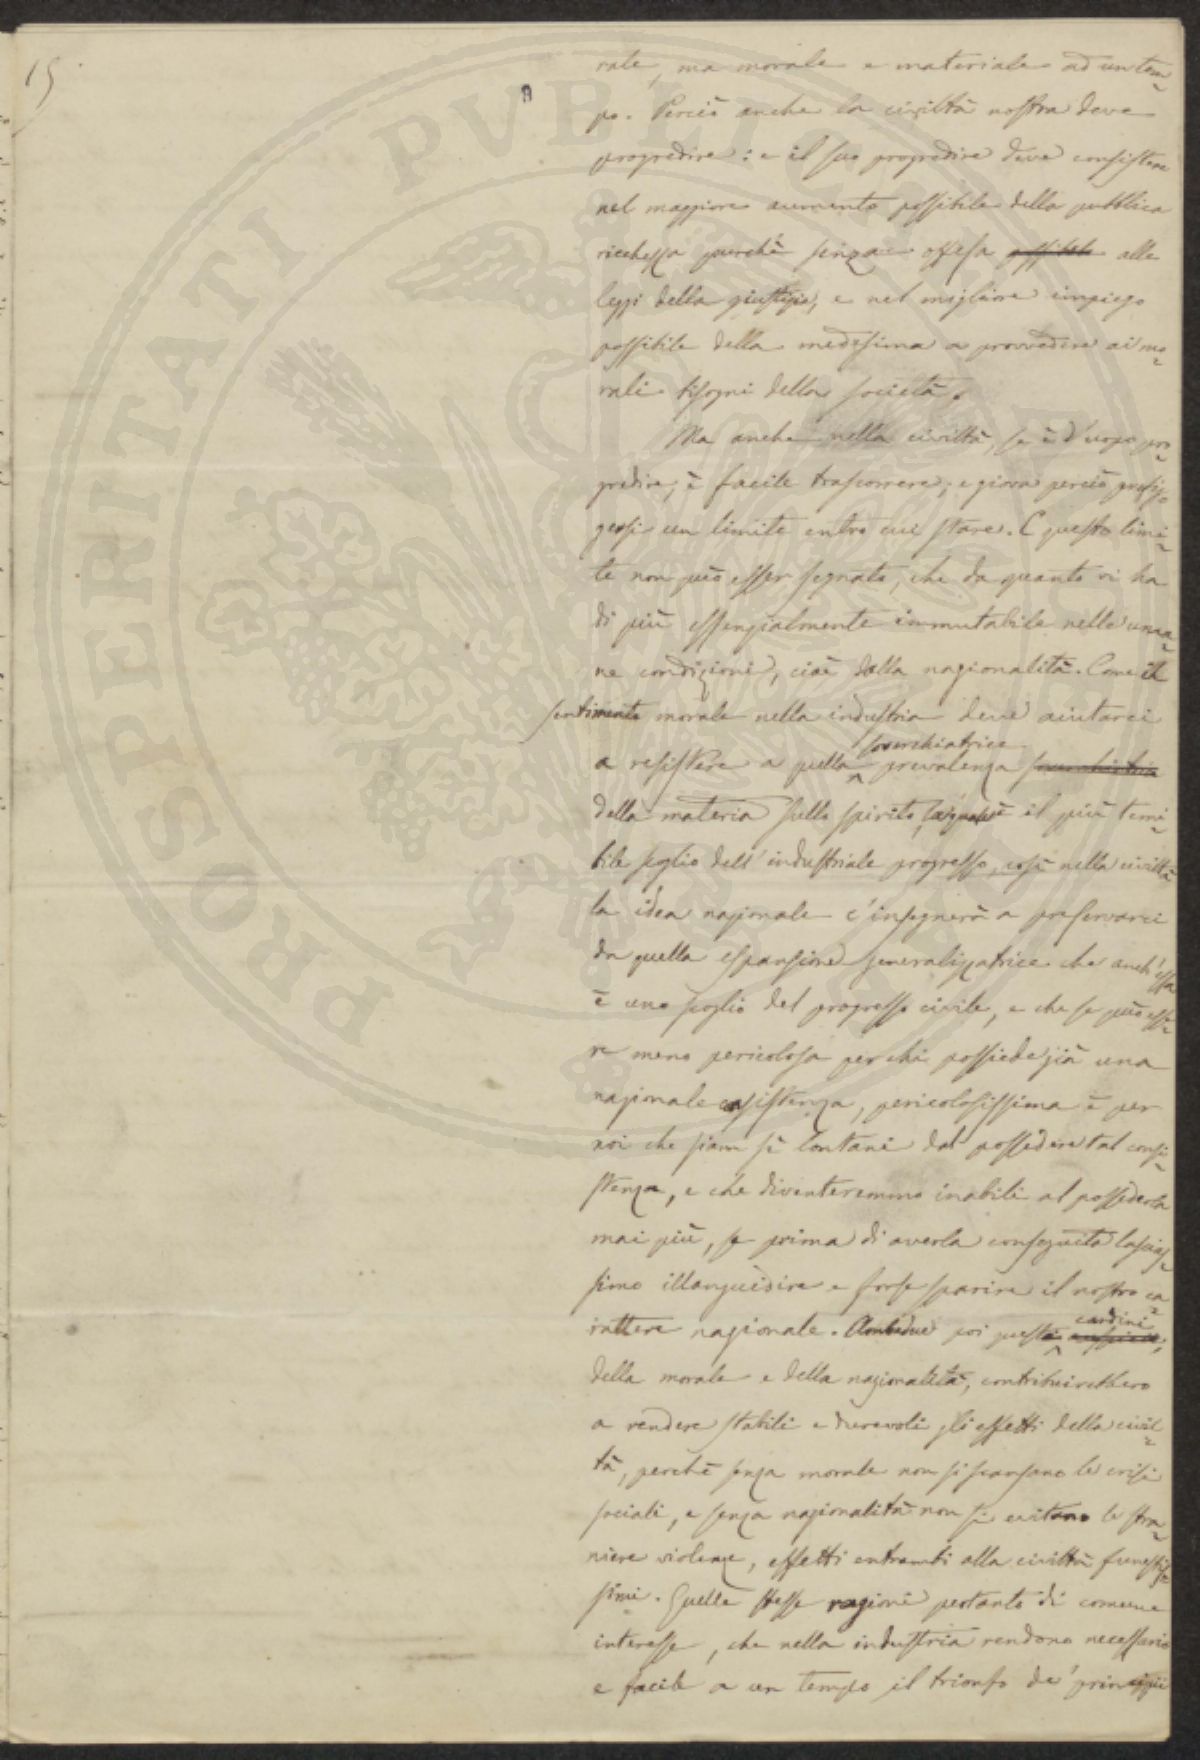 15
rale, ma morale e materiale ad un tem=
po. Perciò anche la civiltà nostra deve
progredire: e il suo progredire deve consistere
nel maggiore aumento possibile della pubblica
ricchezza purchè senza offesa possibile alle
leggi della giustizia, e nel migliore impiego
possibile della medesima a provvedere ai mo=
rali bisogni della società.
Ma anche nella civiltà, se è d'uopo pro=
gredire, è facile trascorrere; e giova perciò prefig=
gersi un limite entro cui stare. E questo limi=
te non può esser segnato, che da quanto vi ha
di più essenzialmente immutabile nelle uma=
ne condizioni, cioè dalla nazionalità. Come il
sentimento morale nella industria deve aiutarci
a resistere a quella soverchiatrice prevalenza soverchiatrice
della materia sullo spirito, la quale è il più temi=
bile scoglio dell'industriale progresso, così nella civiltà
la idea nazionale c'insegnerà a preservarci
da quella espansione generalizzatrice che anch'essa
è uno scoglio del progresso civile, e che se può esse=
re meno pericolosa per chi possiede già una
nazionale consistenza, pericolosissima è per
noi che siam sì lontani dal possedere tal consi=
stenza, e che diventeremmo inabili al possederla
mai più, se prima di averla conseguita lascias=
simo illanguidire e forse sparire il nostro ca=
rattere nazionale. Ambedue poi questi cardini
della morale e della nazionalità, contribuirebbero
a rendere stabili e durevoli gli effetti della civil=
tà, perchè senza morale non si scansano le crisi
sociali, e senza nazionalità non si evitano le stra=
niere violenze, effetti entrambi alla civiltà funestis=
simi. Quelle stesse ragioni pertanto di comune
interesse, che nella industria rendono necessario
e facile a un tempo il trionfo de' principii
PROSPERITATI PVBLICAE